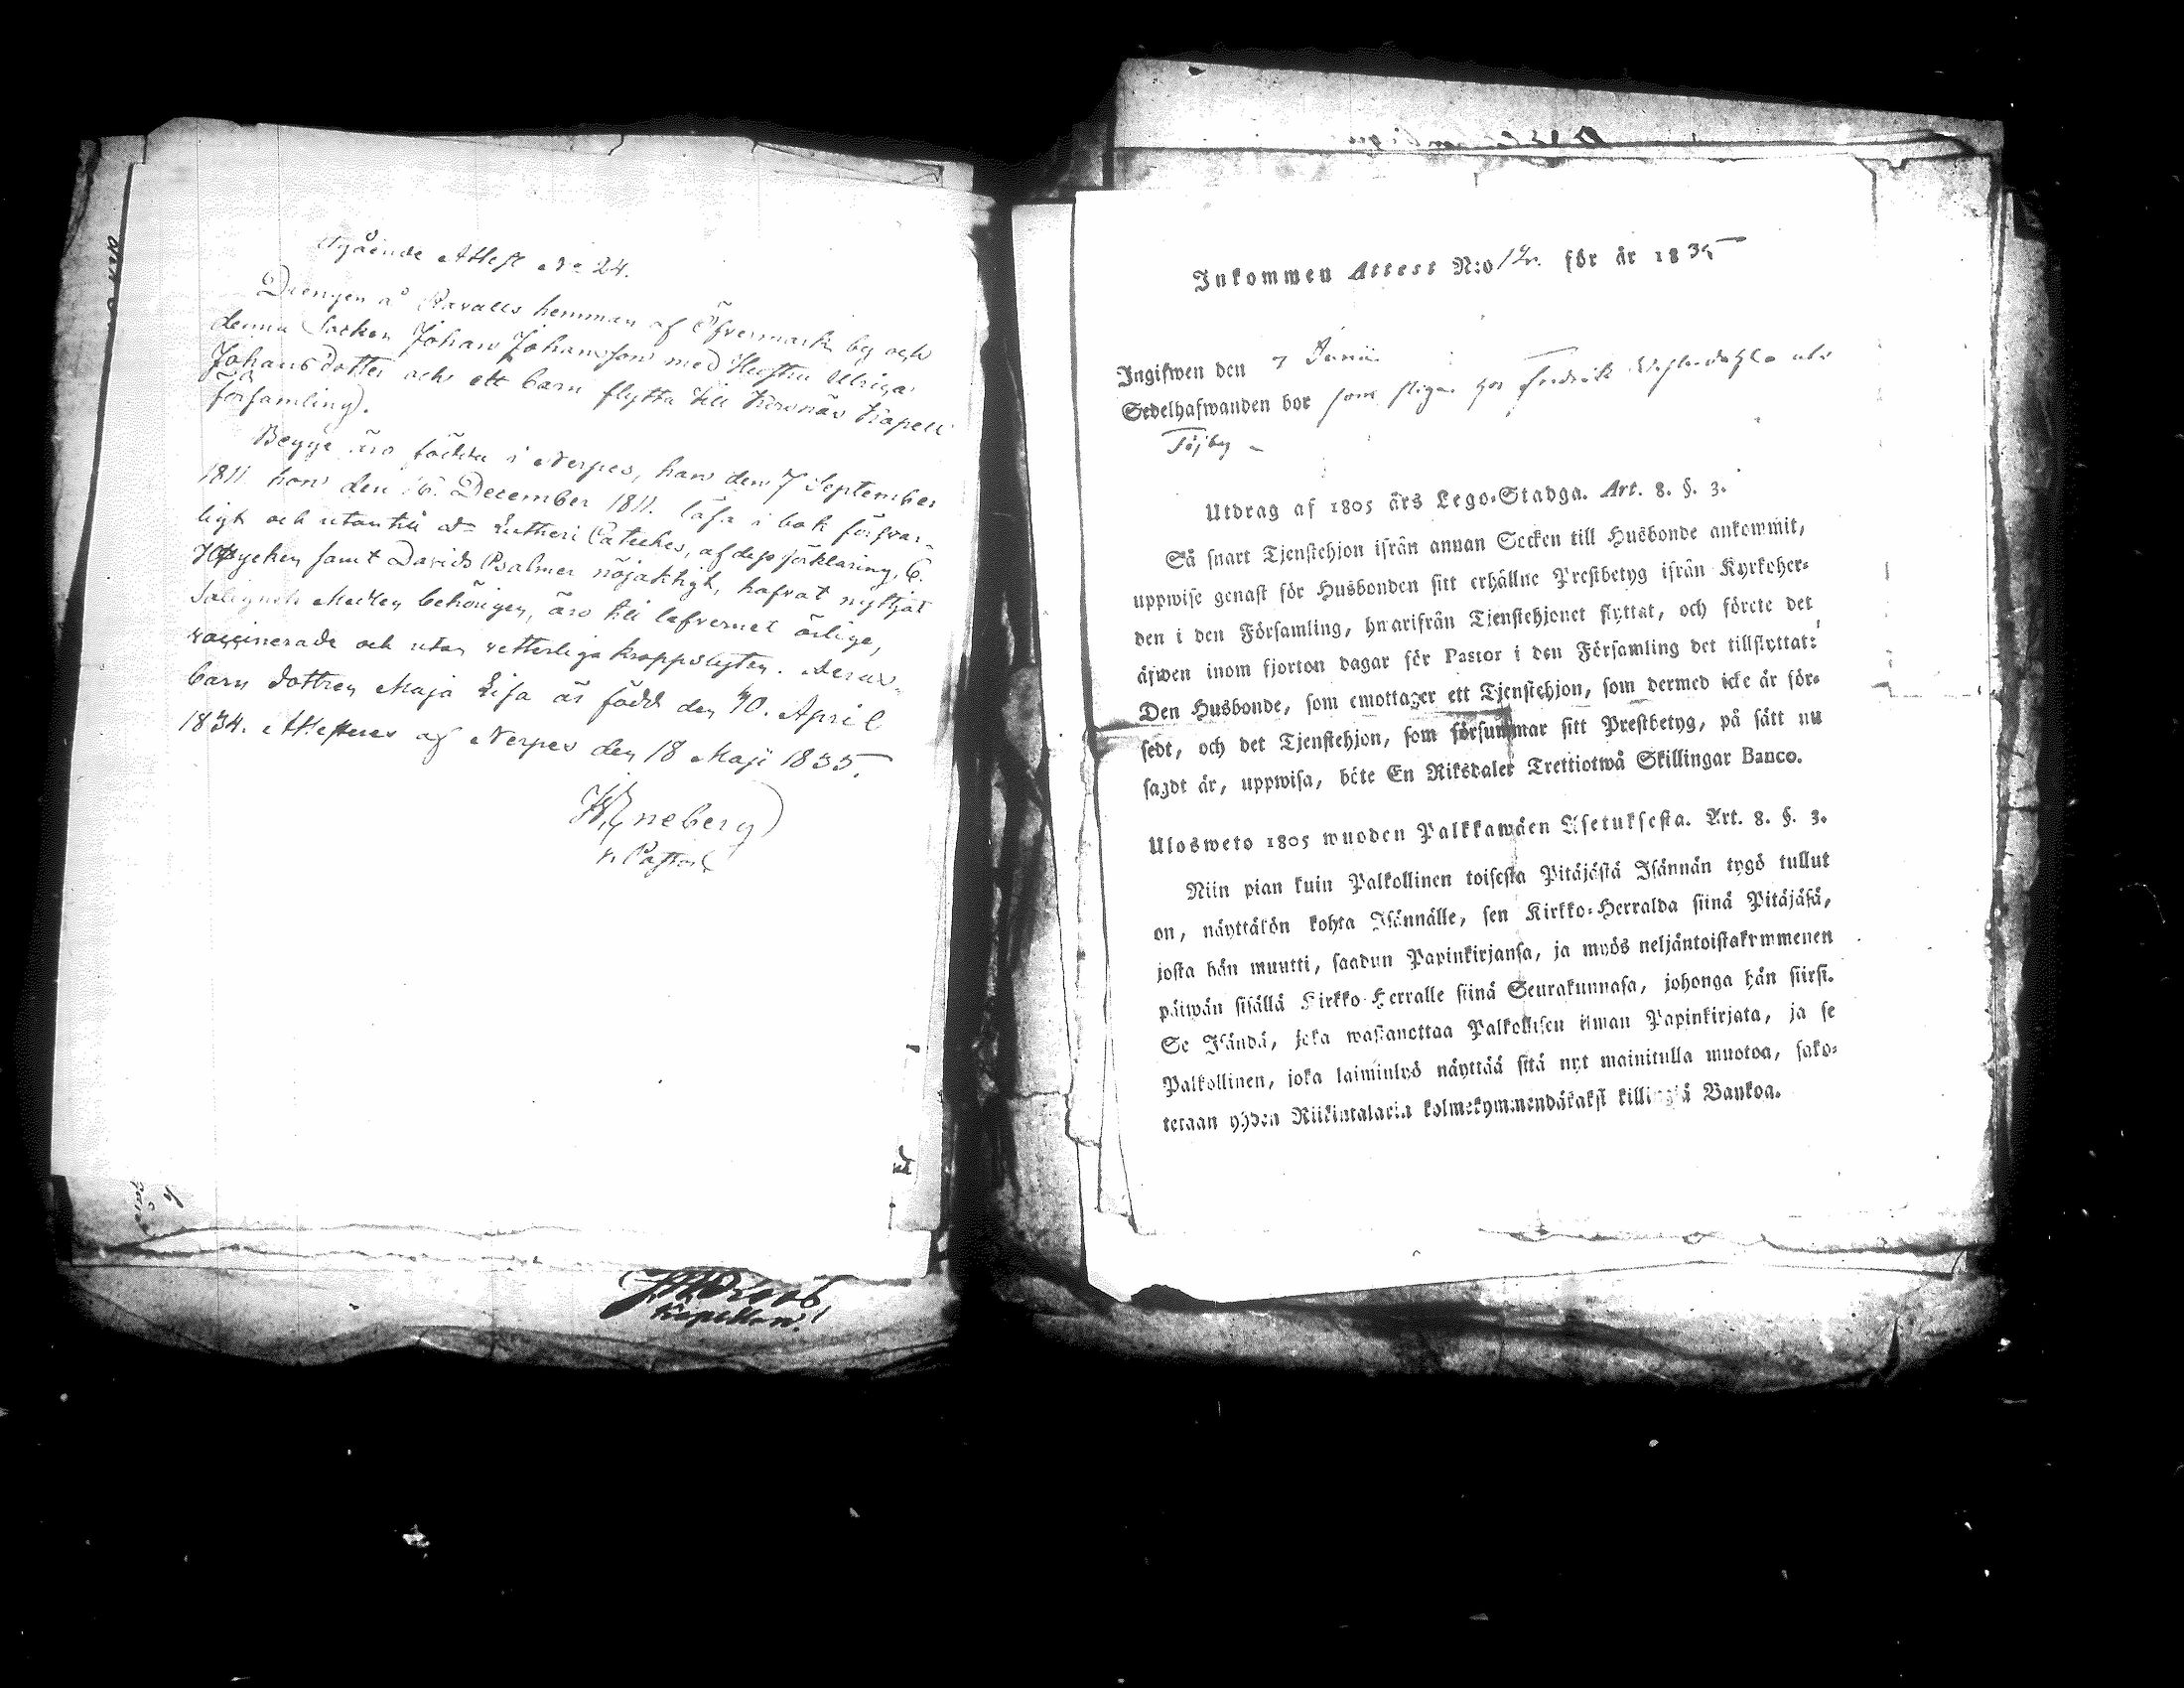 Utgående Attest No 24.
Drengen å Ravalls hemman af Öfvermark by och
denna Socken Johan Johansson med Hustru Ulrica
Johansdotter och ett barn flytta till Korsnäs Kapell
församling.
Begge äro födda i Nerpes, han den 7 September
1811 hon den 16. December 1811. läsa i bok försvar-
ligt och utantill Dr Lutheri Cateches, af dess förklaring, 6.
Hstycken samt Davids Psalmer nöjaktigt, hafva nyttjat
Salighets Medlen behörigen, äro till lefvernet ärliga,
vaccinerade och utan vetterliga kroppslyten. Deras
barn dottren Maja Lisa är född den 10. April
1834. Attesteras af Nerpes den 18 Maji 1835.
neberg
v. Pastor
Kapellan.
Inkommen Attest N:o för år 1835
Ingifwen den 7 Junii
Sedelhafwanden bor som Fredrik
Töjby
Utdrag af 1805 års Lego-Stadga. Art. 8. §. 3.
Så snart Tjenstehjon ifrån annan Socken till Husbonde ankommit,
uppwise genast för Husbonden sitt erhållne Prestbetyg ifrån Kyrkoher-
den i den Församling, hwarifrån Tjenstehjonet flyttat, och förete det
äfwen inom fjorton dagar för Pastor i den Församling det tillflyttat:
Den Husbonde, som emottager ett Tjenstehjon, som dermed icke är för-
sedt, och det Tjenstehjon, som försummar sitt Prestbetyg, på sätt nu
sagdt är, uppwisa, böte En Riksdaler Trettiotwå Skillingar Banco.
Ulosweto 1805 wuoden Palkkawäen Asetuksesta. Art. 8. §. 3.
Niin pian kuin Palkollinen toisesta Pitäjästä Isännän tygö tullut
on, näyttäkön kohta Isännälle, sen Kirkko-Herralda siinä Pitäjäsä,
josta hän muutti, saadun Papinkirjansa, ja myös neljäntoistakymmenen
päiwän sisällä Kirkko-Herralle siinä Seurakunnasa, johonga hän siirsi.
Se Isändä, joka wastanottaa Palkollisen ilman Papinkirjata, ja se
Palkollinen, joka laiminlyö näyttää sitä nyt mainitulla muotoa, sako-
tetaan yhden Riikintalarin kolmekymmendäkaksi killingiä Bankoa.